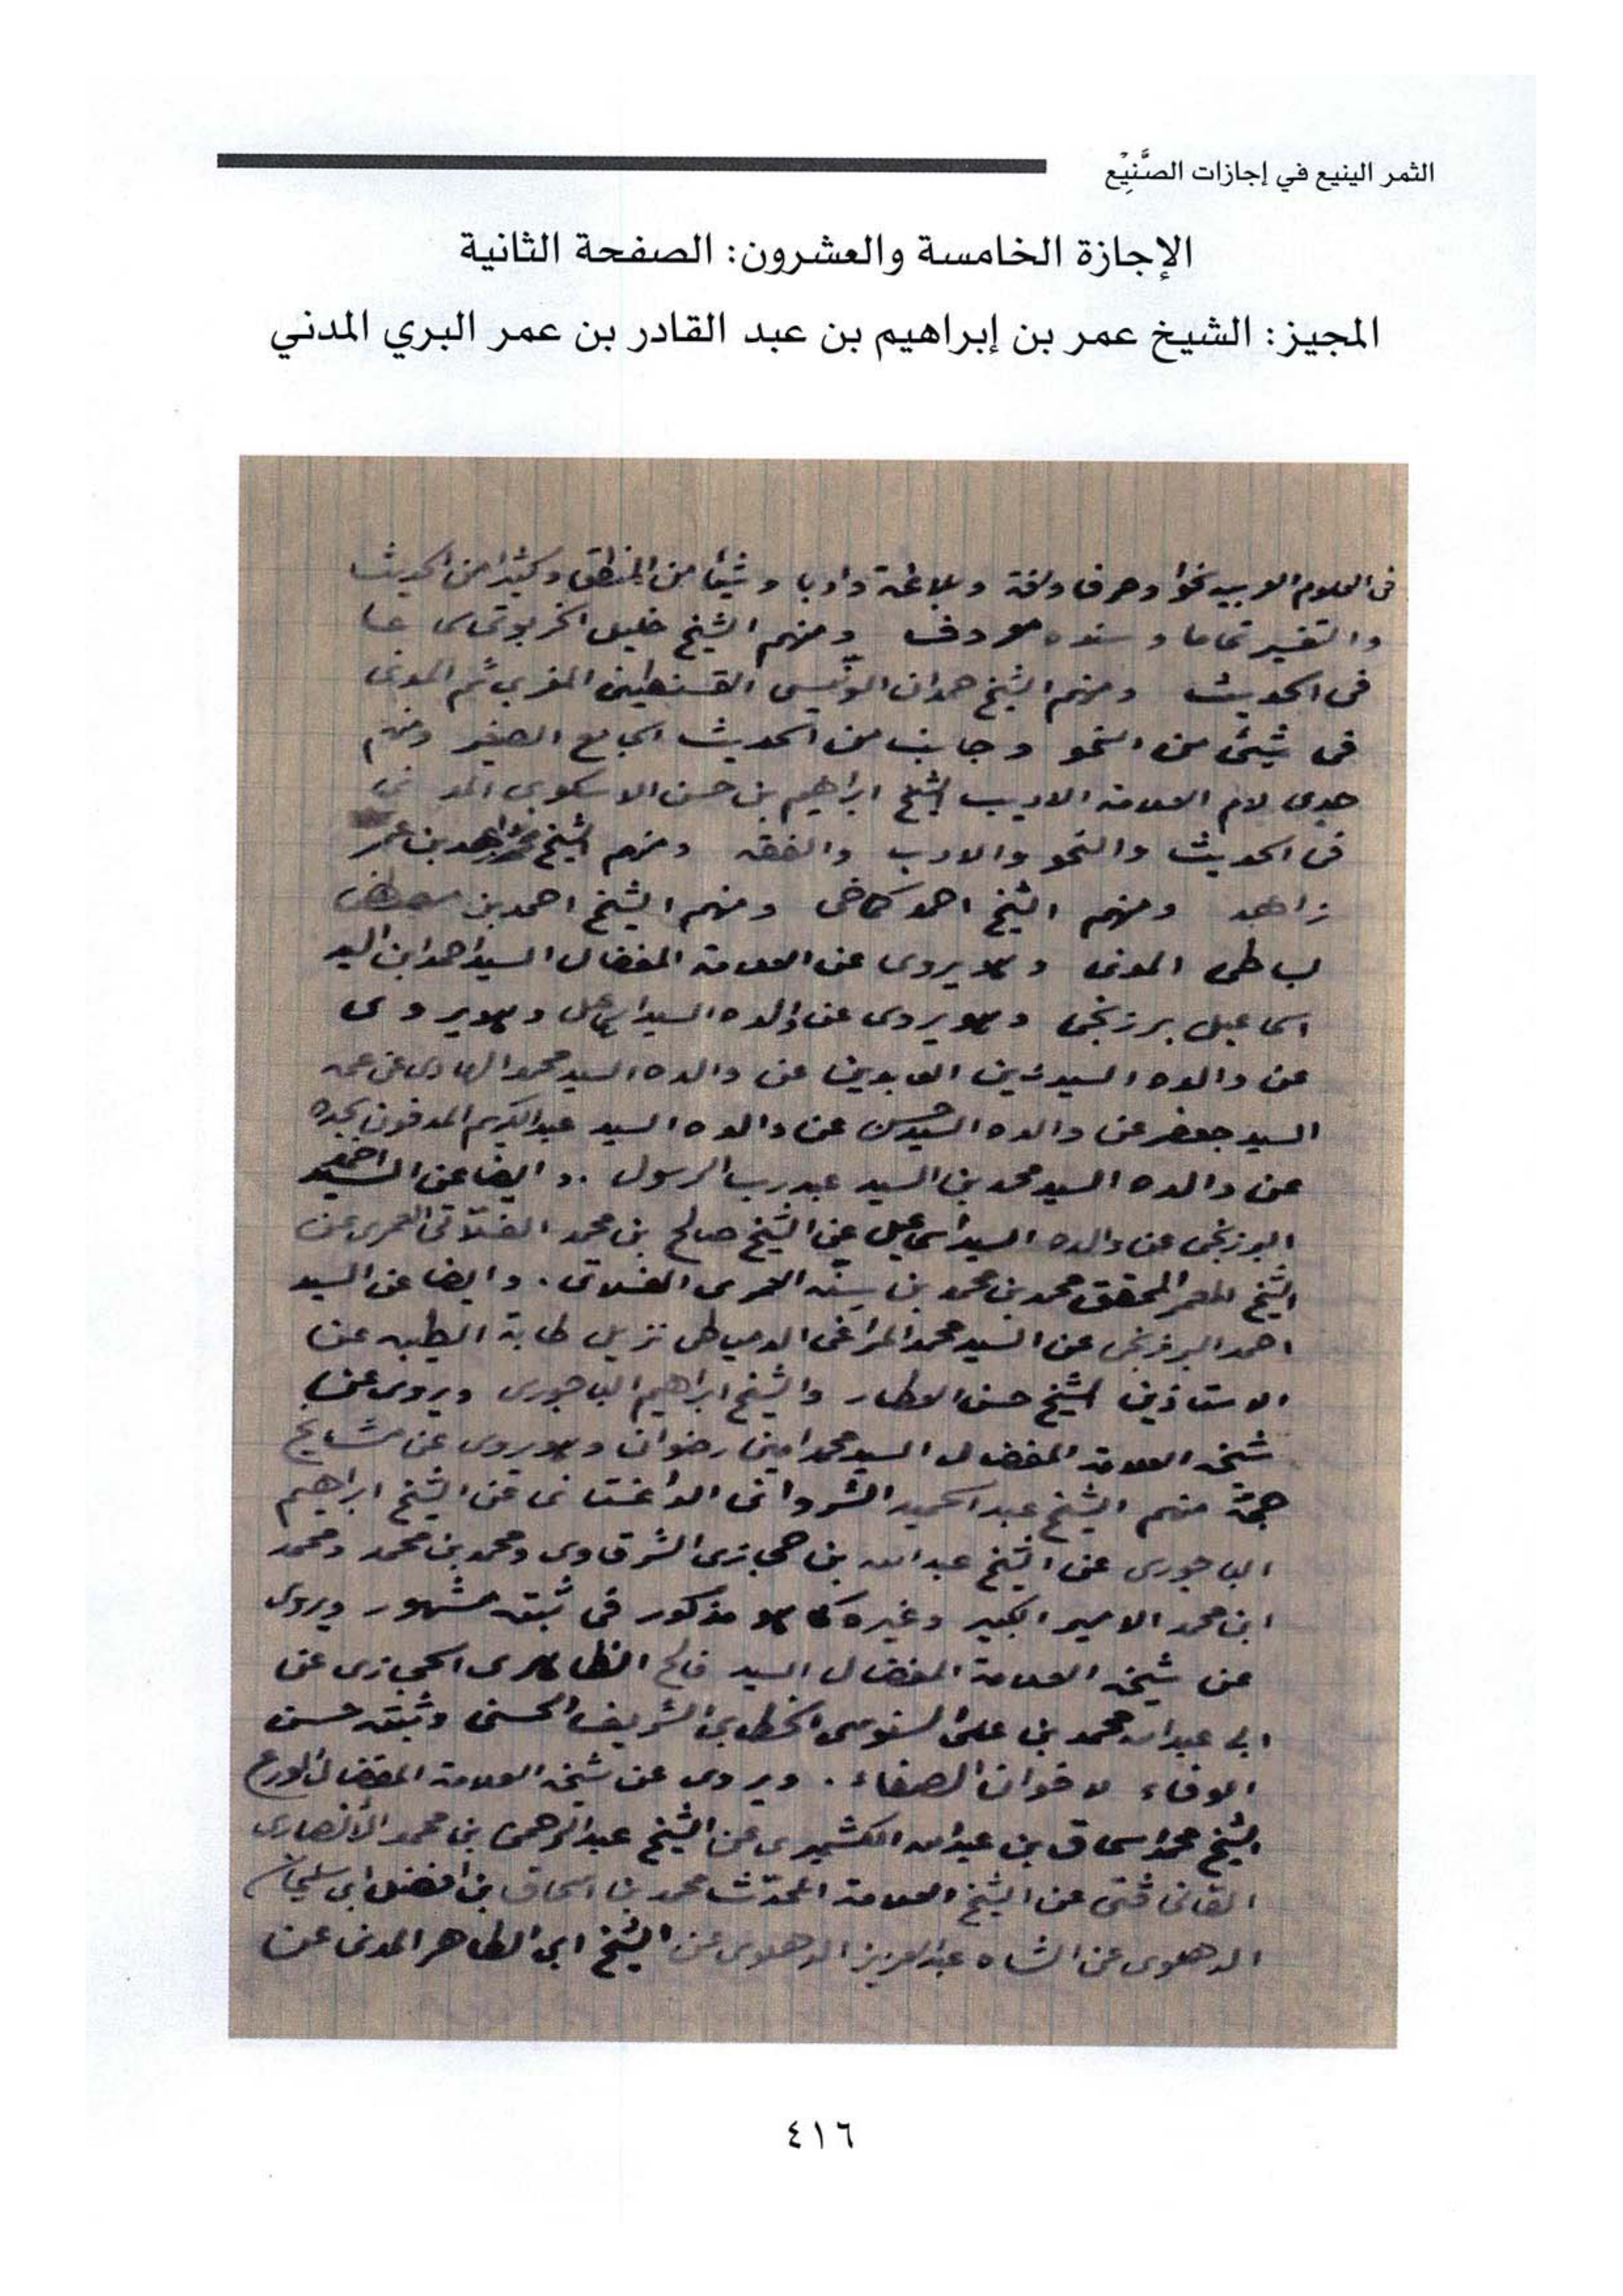 الثمر الينيع في إجازات الصَّنِيْع
الإجازة الخامسة والعشرون: الصفحة الثانية
المجيز: الشيخ عمر بن إبراهيم بن عبد القادر بن عمر البري المدني
فى العلوم العربيه نحوا وصرفا ولغة وبلاغة وادبا وشيئا من المنطق وكثيرا من الحديث
والتفسير تماما وسنده معروف ومنهم الشيخ خليل الخربوتى
فى الحديث ومنهم الشيخ حمدان الونّيسى القسنطينى المغربى ثم المدنى
فى شيئ من النحو وجانب من الحديث الجامع الصغير ومنهم
جدى لام العلامة الاديب الشيخ ابراهيم بن حسن الاسكوبى المدنى
فى الحديث والنحو والادب والفقه ومنهم الشيخ بن عمر
زاهد ومنهم الشيخ احمد كماخى ومنهم الشيخ احمد بن مصطفى
بساطى المدنى وهو يروى عن العلامة المفضال السيد احمد ابن السيد
اسماعيل برزنجى وهو يروى عن والده السيد اسماعيل وهو يروى
عن والده السيد زين العابدين عن والده السيد محمد الهادى عن عمه
السيد جعفر عن والده السيد حسن عن والده السيد عبد الكريم المدفون بجده
عن والده السيد محمد بن السيد عبد رب الرسول .. وايضا عن السيد احمد
البرزنجى عن والده السيد اسماعيل عن الشيخ صالح بن محمد الفلّانى العمرى عن
الشيخ المعمر المحقق محمد بن محمد بن سنّه العمرى الفلانى . وايضا عن السيد
احمد البرزنجى عن السيد محمد المراغى الدمياطى نزيل طابة الطيبه عن
الاستاذين الشيخ حسن العطار والشيخ ابراهيم الباجورى ويروى عن
شيخه العلامة المفضال السيد محمد امين رضوان وهو يروى عن مشايخ
جمّة منهم الشيخ عبد الحميد الشروانى الداغستانى عن الشيخ ابراهيم
الباجورى عن الشيخ عبد الله بن حجازى الشرقاوى ومحمد بن محمد ومحمد
ابن محمد الامير الكبير وغيره كما هو مذكور فى ثبته مشهور ويروى
عن شيخه العلامة المفضال السيد فالح الظاهرى الحجازى عن
ابى عبد الله محمد بن على السنوسى الخطابى الشريف الحسنى وثبته حسن
الوفاء لاخوان الصفاء . ويروى عن شيخه العلامة المفضال الورع
الشيخ محمد اسحاق بن عبد الله الكشميرى عن الشيخ عبد الرحمن بن محمد الأنصارى
الفانى فتى عن الشيخ العلامة المحدّث محمد بن اسحاق بن افضل ابى سليمان
الدهلوى عن الشاه عبد العزيز الدهلوى عن الشيخ ابى الطاهر المدنى عن
٤١٦